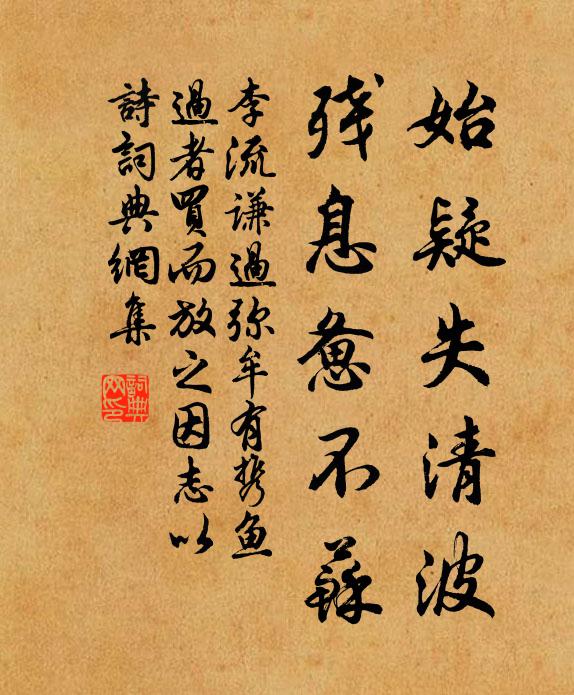 始疑失清波
残息惫不蘇
李流谦過弥牟有携鱼
過者買而放之因志以
詩詞典網集
詞典网印